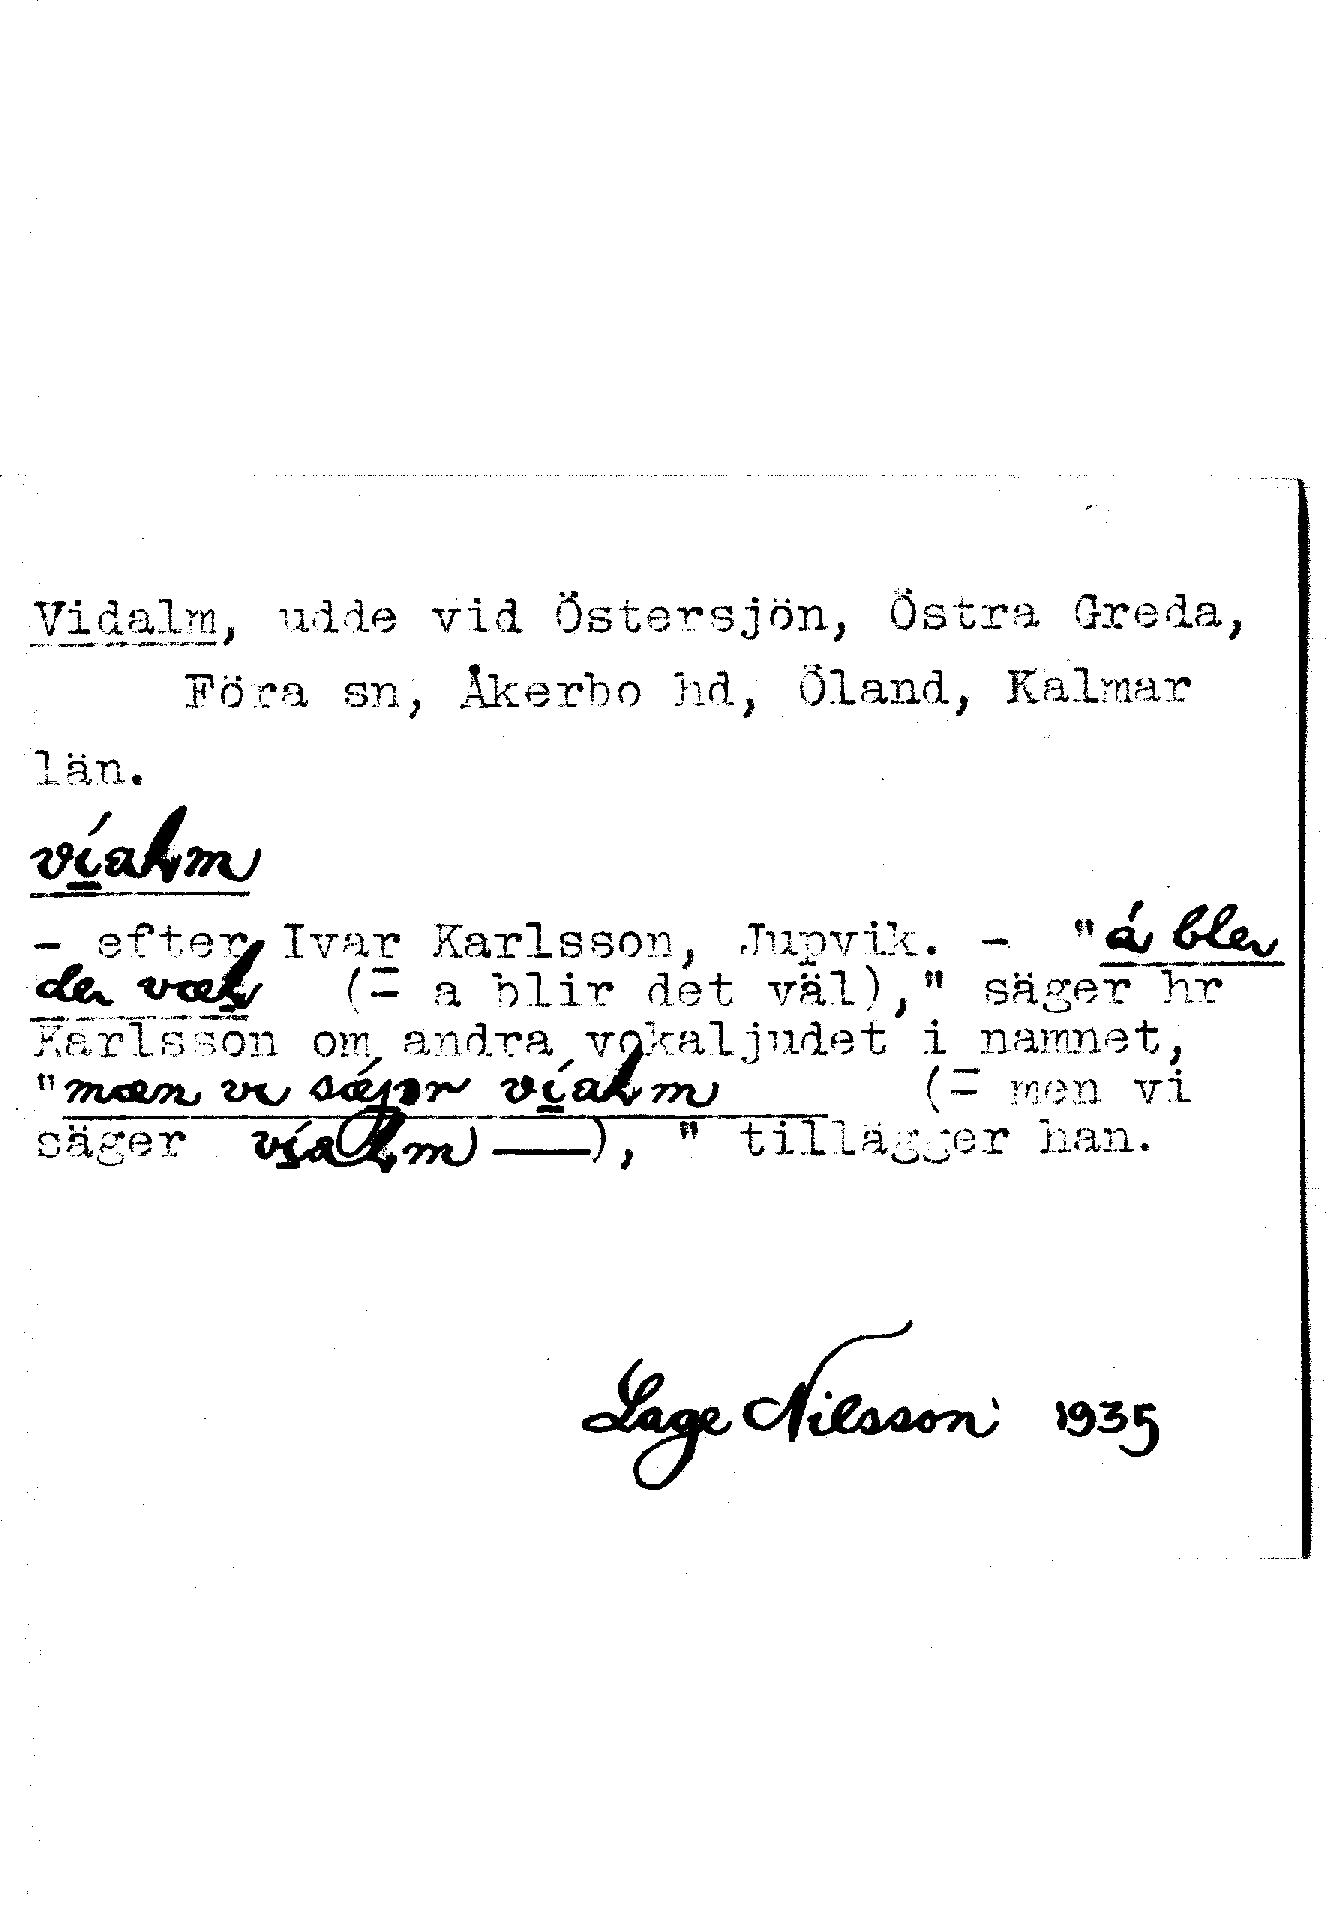 Vidalm, udde vid Östersjön, Östra Greda,
Föra sn, Åkerbo hd, Öland, Kalmar
län.
víalm
- efter Ivar Karlsson, Jupvik. - "á ble
de væl (= a blir det väl)," säger hr
Karlsson om andra vokaljudet i namnet,
"mæn vi sǽjər víalm (= men vi
säger víalm —), " tillägger han.
Lage Nilsson 1935